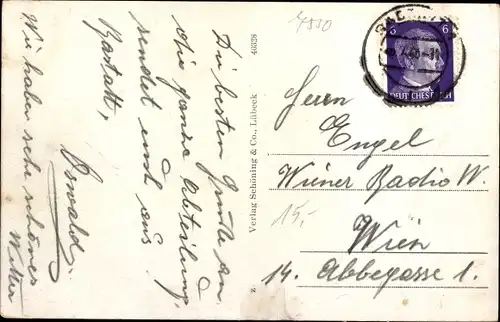 7550
6 6
DEUTSCHES REICH
Die besten Grüße an
die ganze Abteilung,
sendet euch aus
Rastatt,
Oswald.
Wir haben sehr schönes
Wetter
z Verlag Schöning & Co., Lübeck 46328
Herrn
Engel
Wiener Radio W.
15,-
Wien
14. Abbegasse 1.